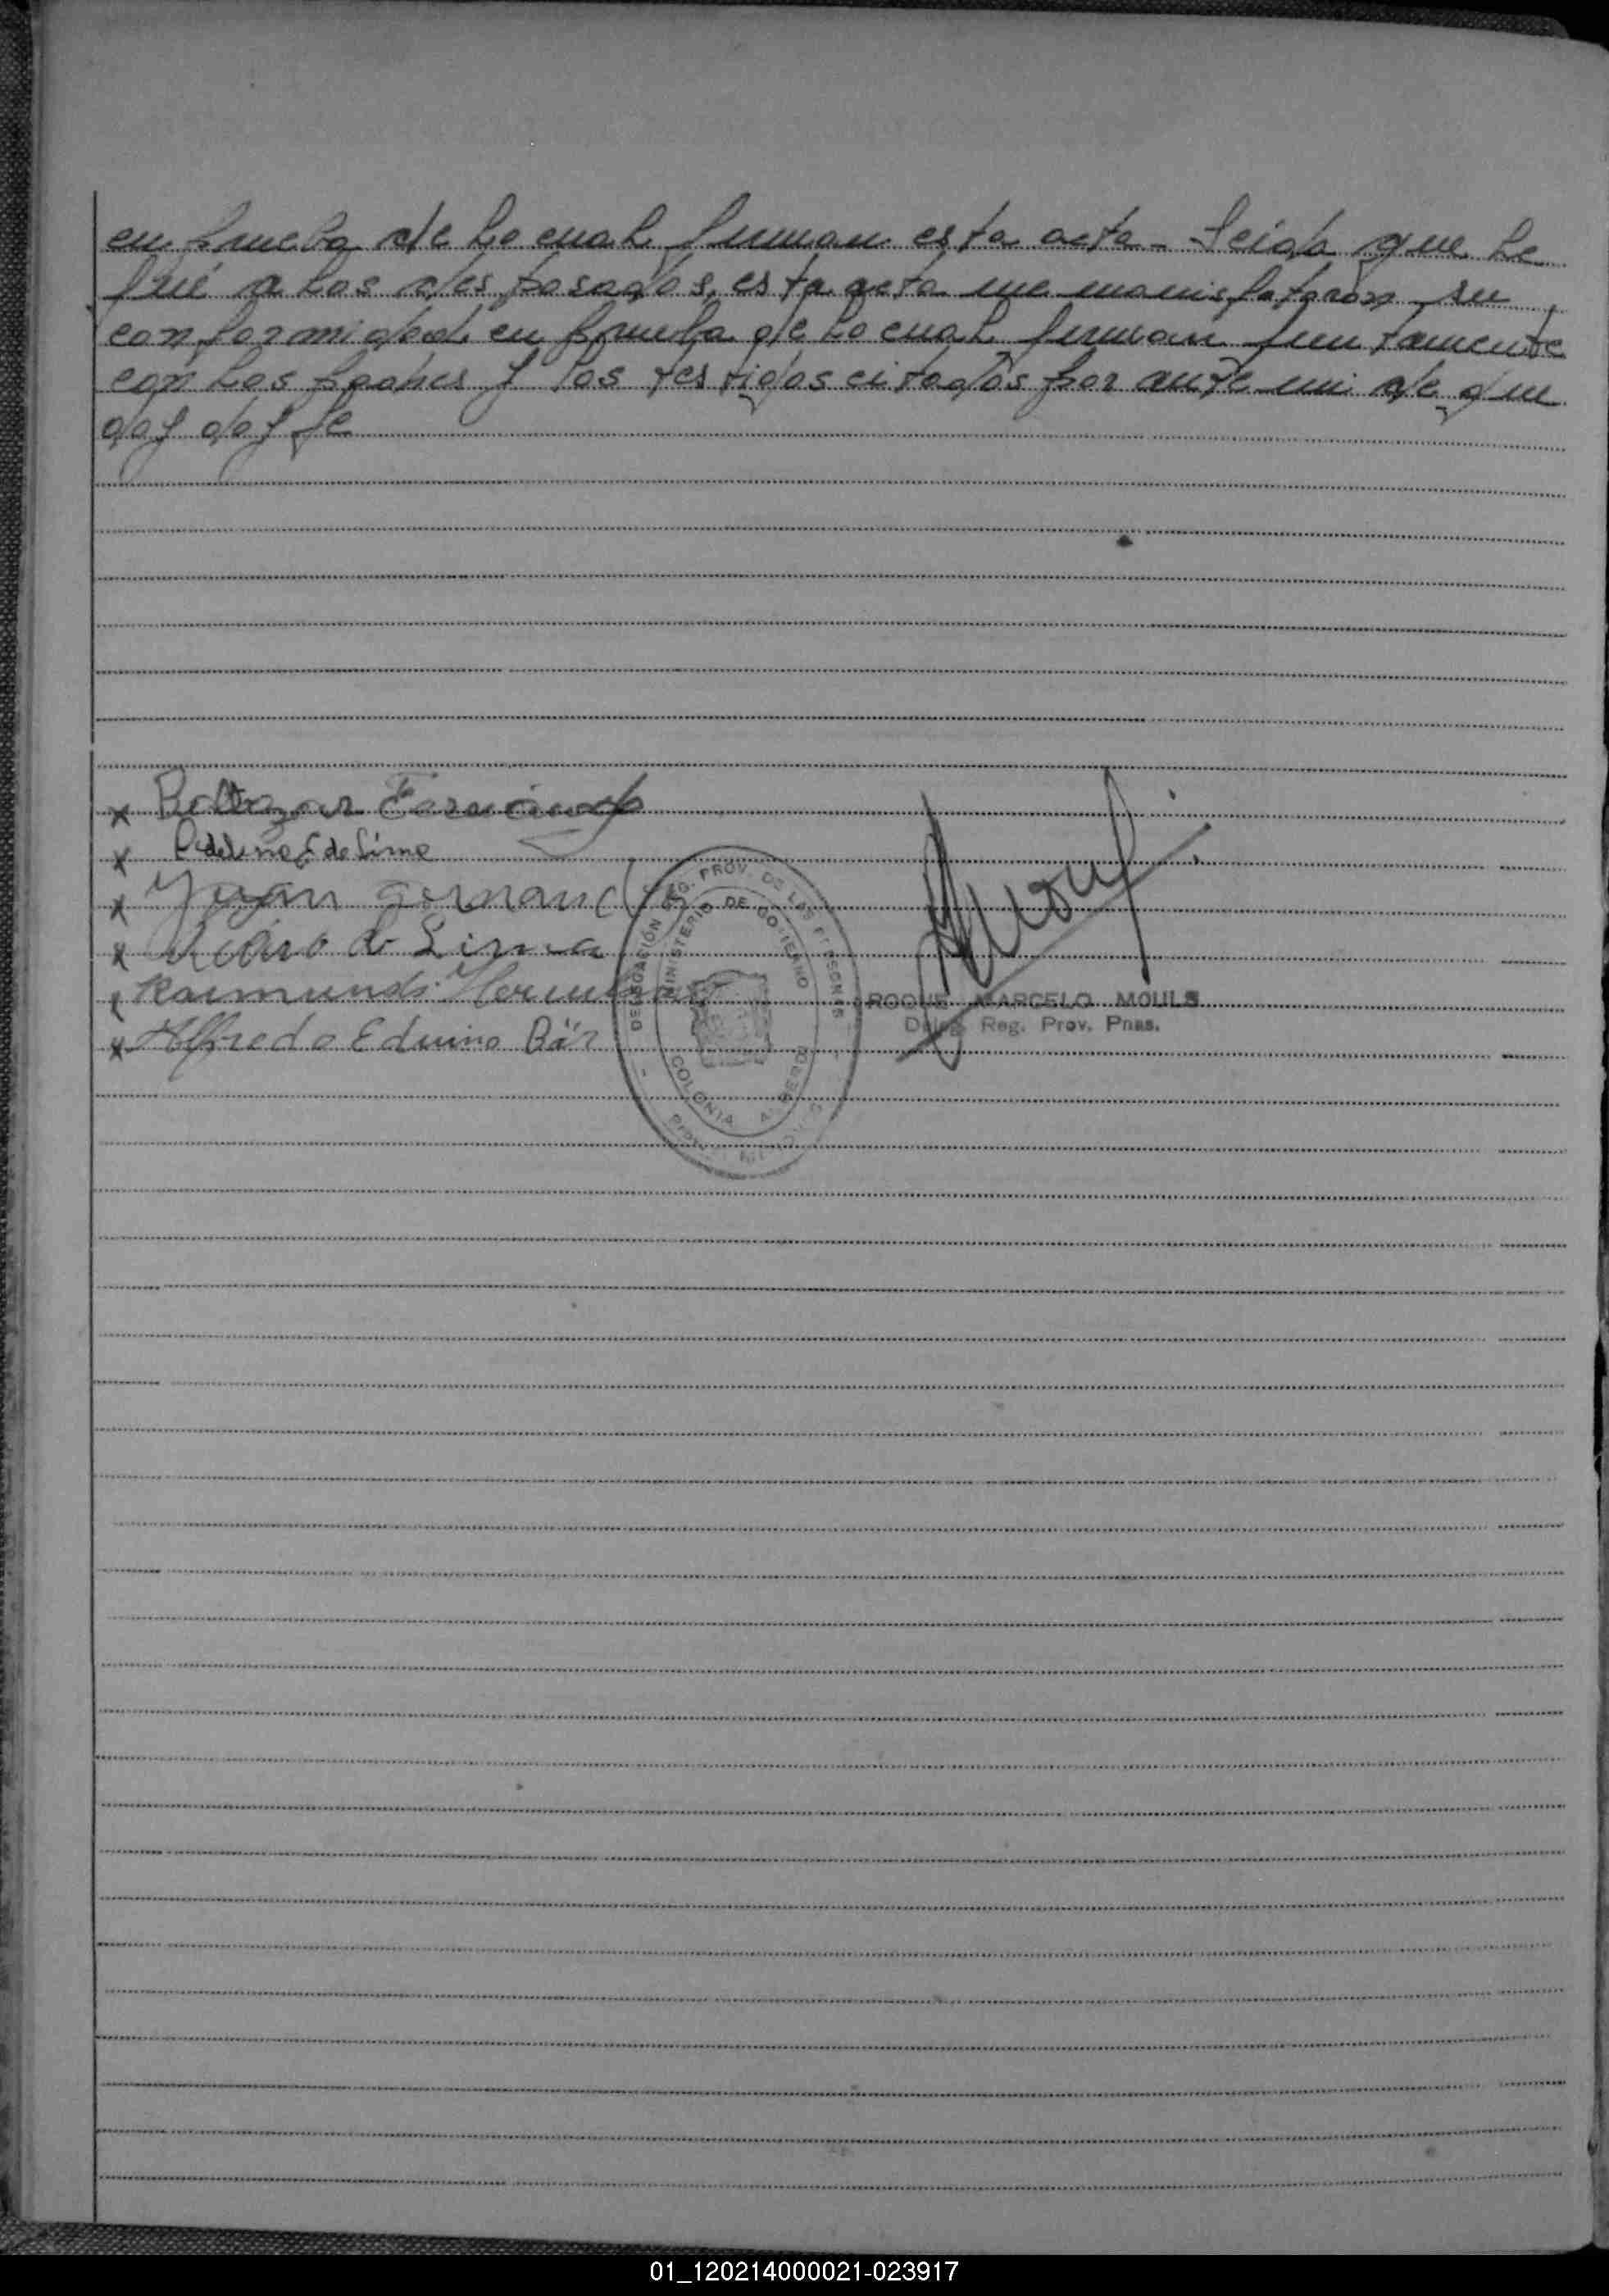 en prueba de lo cual firman esta acta - Leida que le
fué a los desposados, esta acta me manisfataron su
conformidad, en prueba de lo cual firman juntamente
con los padres y los testigos citados por ante mi de que
doy doy fe
x Baltazar
x E de Lima
x Juan
x de Lima
x Raimundo
x Alfredo Eduino Bär
DELEGACIÓN REG. PROV. DE LAS PERSONAS
MINISTERIO DE GOBIERNO
COLONIA
ROQUE MARCELO MOULS
Deleg. Reg. Prov. Pnas.
01_120214000021-023917